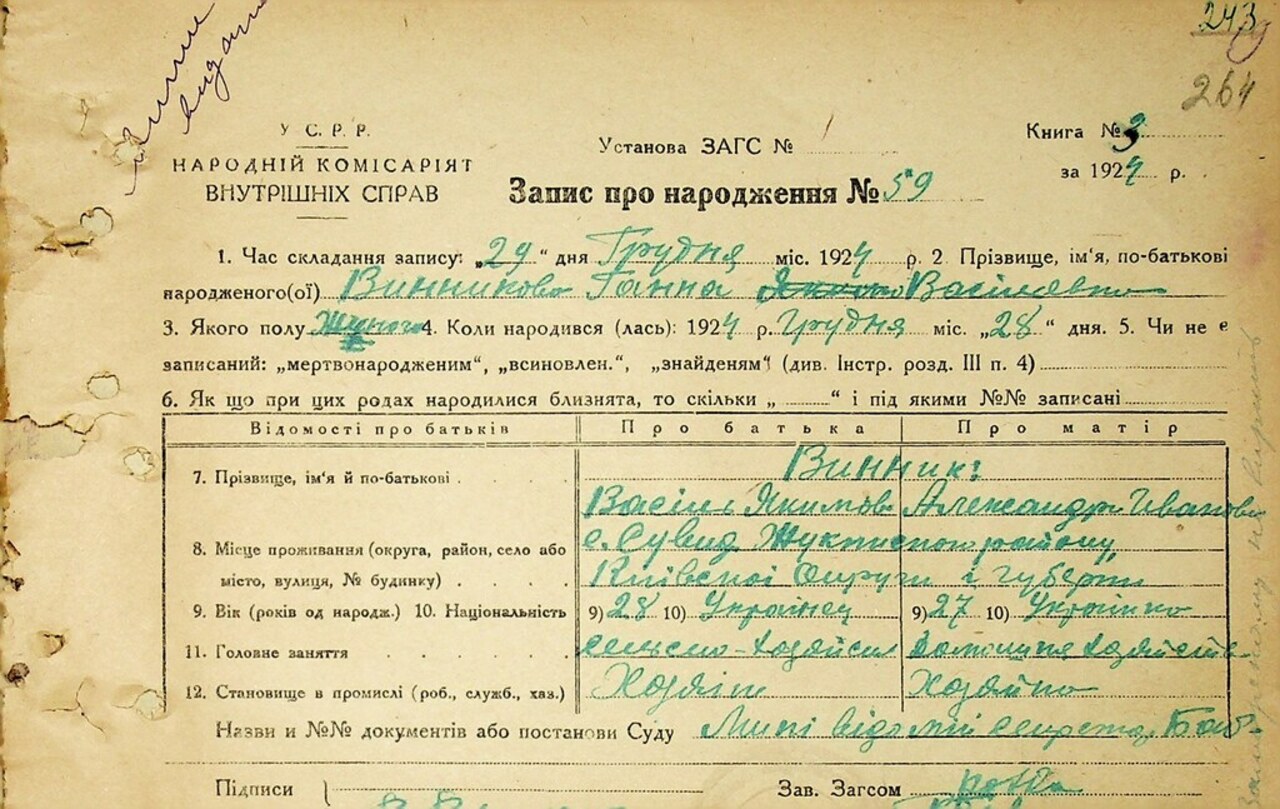 243
264
У С. Р. Р.
НАРОДНІЙ КОМІСАРІЯТ
ВНУТРІШНІХ СПРАВ
Установа ЗАГС №
Книга № 3
за 1924 р.
Запис про народження № 59
1. Час складання запису: „29“ дня Грудня міс. 1924 р. 2 Прізвище, ім'я, по-батькові
народженого(ої) Винникова Ганна Васілевна
3. Якого полу Жіночого 4. Коли народився (лась): 1924 р. Грудня міс. „28“ дня. 5. Чи не є
записаний: „мертвонародженим“, „всиновлен.“, „знайденям“ (див. Інстр. розд. III п. 4)
6. Як що при цих родах народилися близнята, то скільки „ “ і під якими №№ записані
Відомості про батьків Про батька Про матір
7. Прізвище, ім'я й по-батькові Винник
Васіль Якимов Александра Іванова
8. Місце проживання (округа, район, село або с. Сувид Жукинского району
місто, вулиця, № будинку) Київскої Округи і губерні
9. Вік (років од народж.) 10. Національність 9) 28 10) Українец 9) 27 10) Українка
11. Головне заняття сельско-хазяйсл Домашня хазяйств.
12. Становище в промислі (роб., служб., хаз.) Хозяін Хозяйка
Назви и №№ документів або постанови Суду Мині відомій секретар
Підписи Зав. Загсом